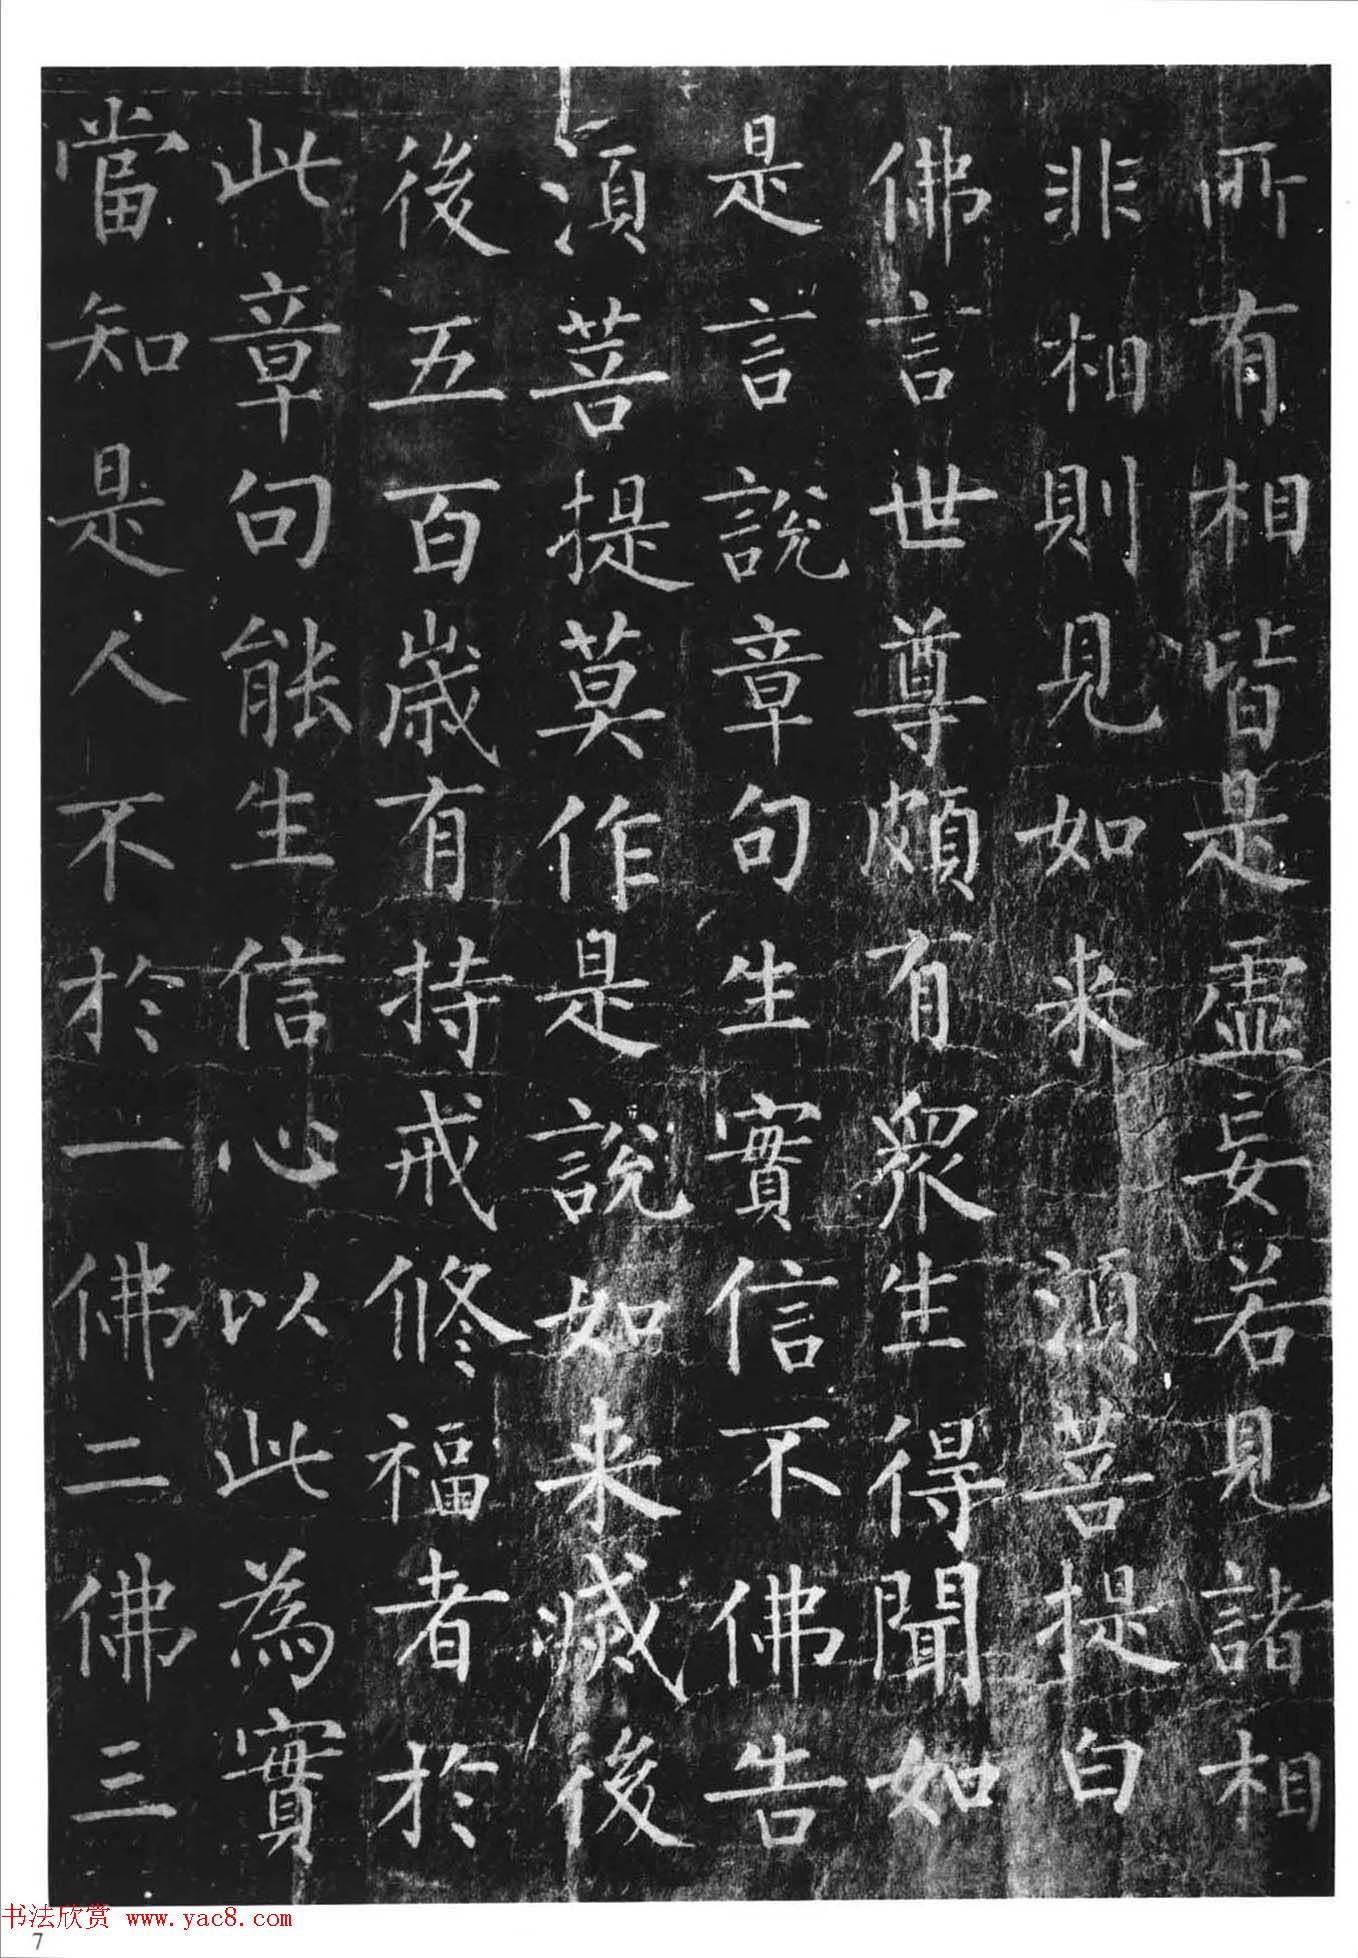 所有相皆是虛妄若見諸相
非相則見如来須菩提白
佛言世尊頗有眾生得聞如
是言說章句生實信不佛告
須菩提莫作是說如来滅後
後五百歲有持戒修福者於
此章句能生信心以此為實
當知是人不於一佛二佛三
书法欣赏 www.yac8.com
7